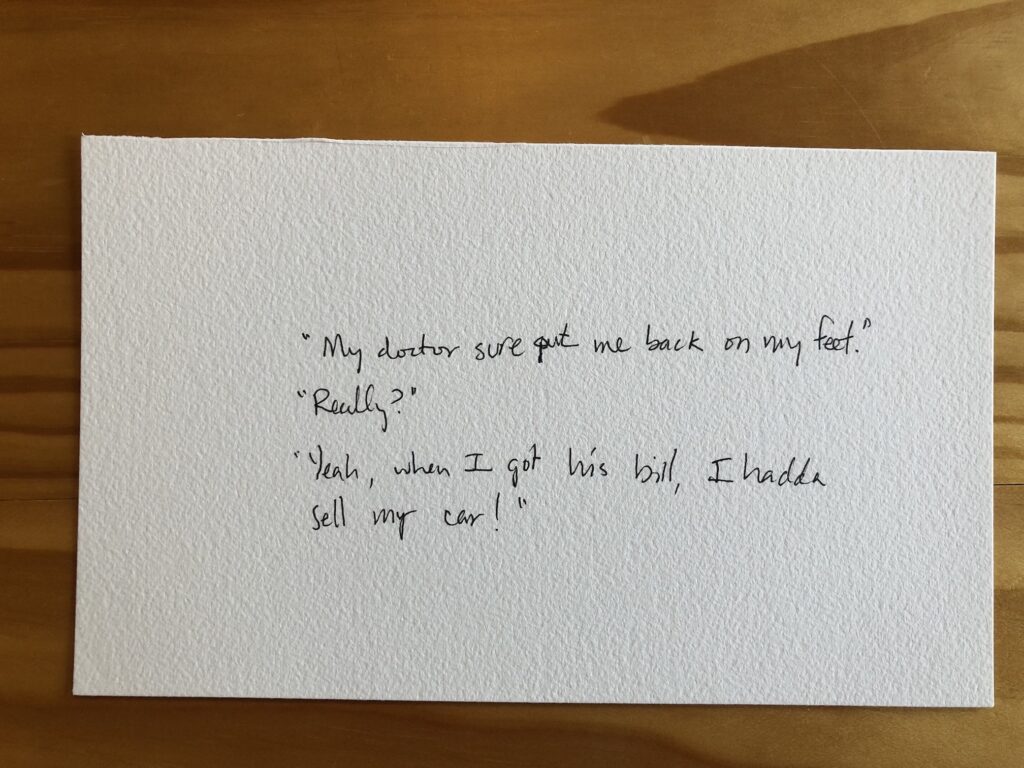 "My doctor sure put me back on my feet."
"Really?"
"Yeah, when I got his bill, I hadda
sell my car!"